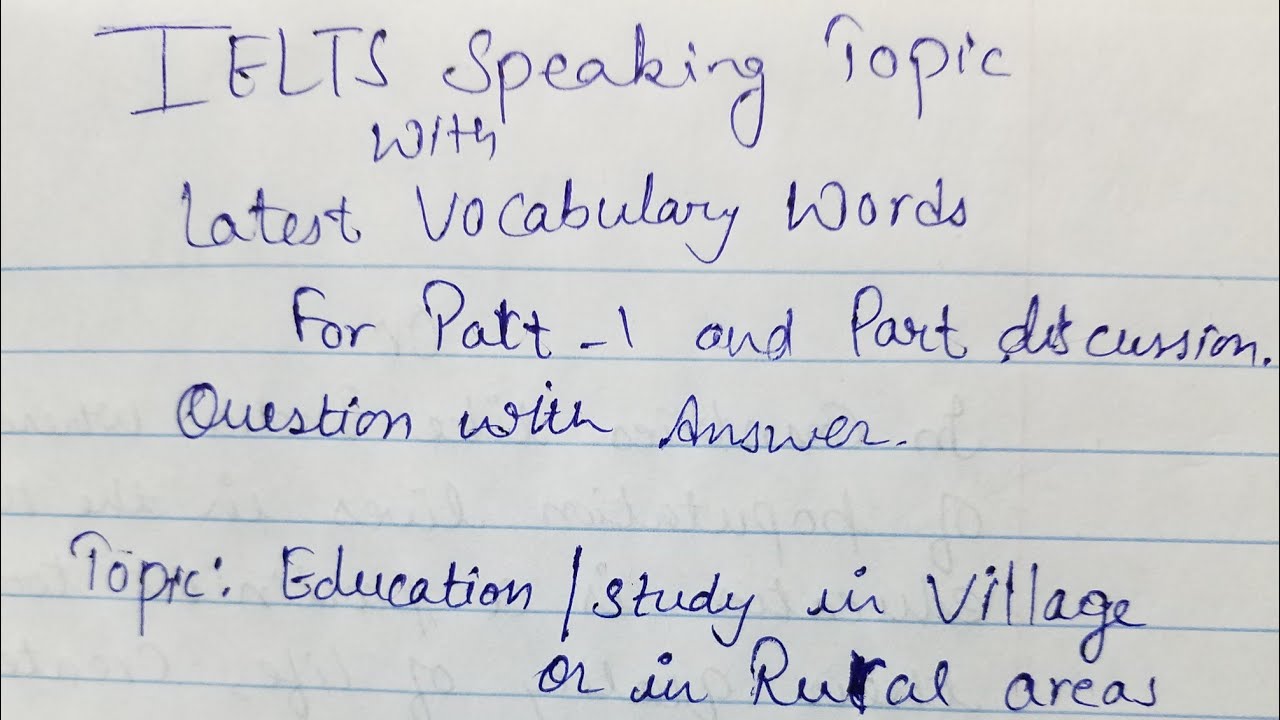 IELTS Speaking Topic
with
Latest Vocabulary Words
For Part - 1 and Part discussion.
Question with Answer.
Topic: Education / study in Village
or in Rural areas